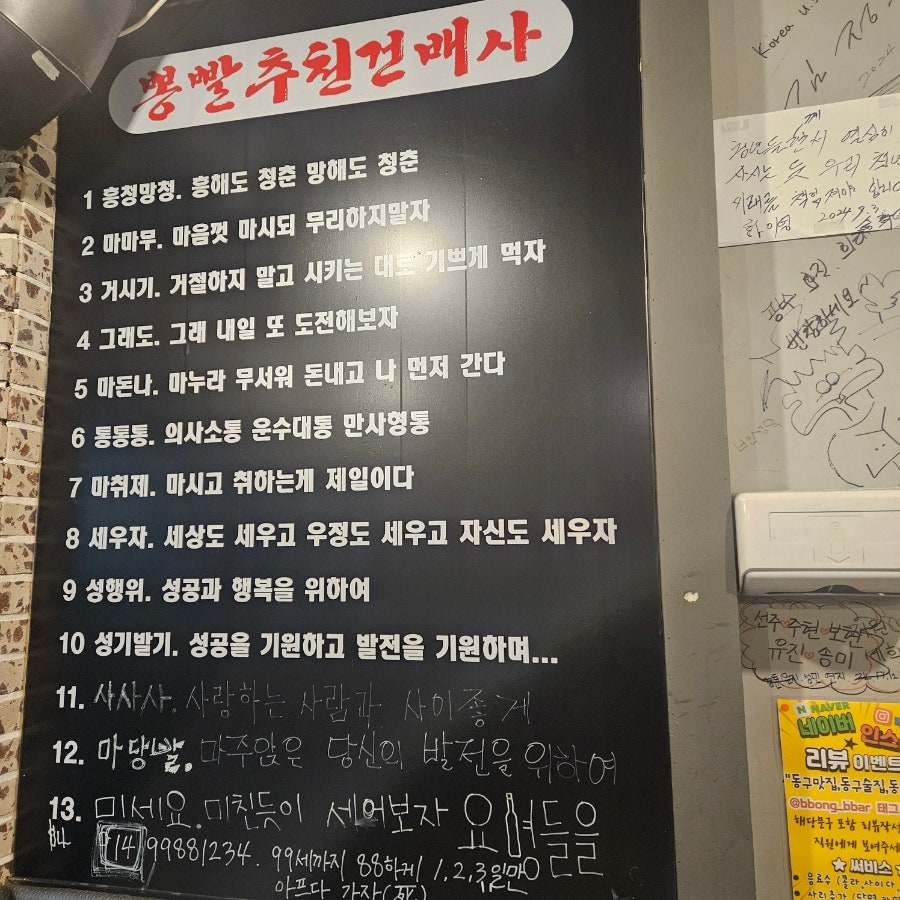 뽕빨추천건배사
1 흥청망청. 흥해도 청춘 망해도 청춘
2 마마무. 마음껏 마시되 무리하지말자
3 거시기. 거절하지 말고 시키는 대로 기쁘게 먹자
4 그래도. 그래 내일 또 도전해보자
5 마돈나. 마누라 무서워 돈내고 나 먼저 간다
6 통통통. 의사소통 운수대통 만사형통
7 마취제. 마시고 취하는게 제일이다
8 세우자. 세상도 세우고 우정도 세우고 자신도 세우자
9 성행위. 성공과 행복을 위하여
10 성기발기. 성공을 기원하고 발전을 기원하며...
11. 사사사. 사랑하는 사람과 사이좋게
12. 마당발. 마주앉은 당신의 발전을 위하여
13. 미세요. 미친듯이 세어보자 요 병들을
14 99881234. 99세까지 88하게 1,2,3일만
아프다 가자(死)
Korea U.S
김 정
2024
열심히
사시는 듯 우리 청년
미래를 책임져야 합니다
2024.9.3
반창하세요
선주 주현 보현
유진 송미
N NAVER
네이버 인스
리뷰 이벤트
"동구맛집,동구술집,동
@bbong_bbar 태그
해당문구 포함 리뷰작성
직원에게 보여주세
★ 써비스
음료수 (콜라,사이다